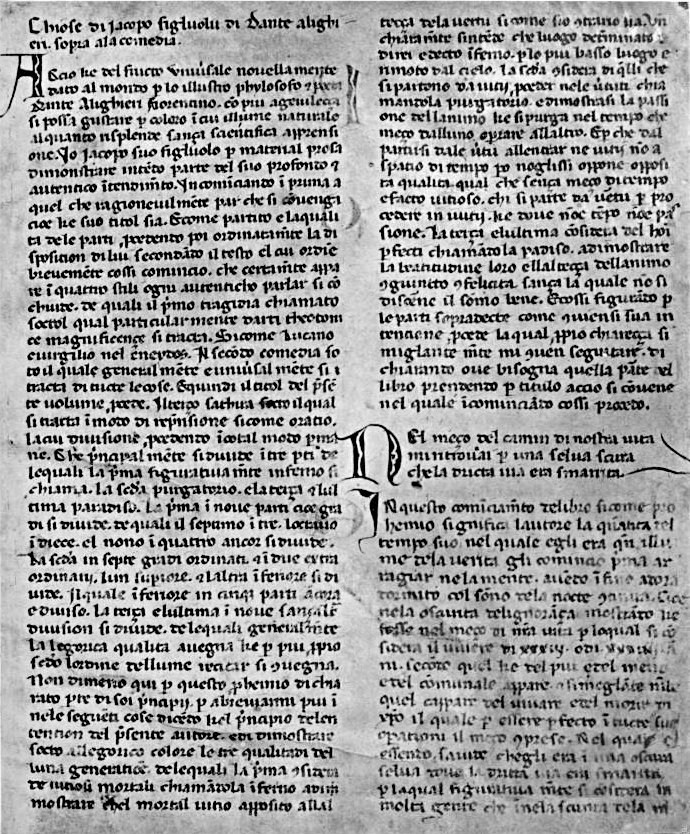 Chiose di Jacopo figluolu di Dante aligh
eri. sopra ala comedia.
Acio ke del fructo universale novella mente
dato al mondo p lo illustro phylosofo ⁊ poeta
Dante Alighieri fiorentino. cō piu agevileça
si possa gustare p coloro ī cui illume naturale
alquanto risplende sança scientifica apprensi
one. Jo Jacopo suo figluolo p material prosa
dimonstrare intēto parte del suo profondo ⁊
autentico ītendimēto. Jncominciando ī prima a
quel che ragionevilmēte par che si cōvenga
cioe ke suo titol sia. Ecome partito e la quali
ta dele parti, procedento poi ordinatamēte la di
sposition di lui secondādo il testo el cui ordīe
brievemēte cossi comincio. che certamēte appa
re ī quattro stili ogni autenticho parlar si cō
chiude. de quali il pimo tragidia chiamato
socto l qual particular mente darti theotom
ce magnificençe si tracta. Sicome Lucano
e virgilio nel eneydos. Jl secōdo comedia so
to il quale general mēte e universal mēte si
tracta di tucte le cose. Equindi il titol del psē
te volume, procede. Jl terço sathira socto il qual
si tracta ī modo di reprēsione sicome oratio.
La cui divisione, procedento ī cotal modo prima
ne. Che prīncipal mēte si divide ī tre pti de
lequali la pima figurativa mēte inferno si
chiama. la secōda purgatorio. e la terça ⁊ lul
tima paradiso. La pima ī nove parti cioe gra
di si divide. de quali il septimo ī tre. loctavo
ī diece. el nono ī quattro ancor si divide.
La secōda in septe gradi ordinati. ⁊ ī due extra
ordinarii. lun supiore. ⁊ laltra īferiore si di
vide. Jl quale īferiore in cinqi parti ācora
e diviso. La terça e lultima ī nove sansaltra
division si divide. de lequali generalmēte
la legorica qualita avegna ke p piu, ppio
secōdo lordine dellume recitar si ꝯvegna.
Non dimeno qui p questo proheimio di chia
rato pte di soi pīncipii. p abreviarmi piu ī
nele seguēti cose dicēto kel pīncipio delen
tention del psente autore. e di dimostrare
socto allegorico colore le tre qualitadi del
luna generatiōe. de lequali la pima ꝯsidera
de vitiosi mortali chiamādola īferno a dim
mostrare chel mortal vitio apposito allal
teça dela vertu si come suo ꝯtrario sia. Un
chiaramēte sintēde che luogo determinato di
di rei e decto īferno. p lo piu basso luogo e
rimoto dal cielo. La secōda ꝯsidera di qlli che
si partono da vitii, proceder nele vtuti chia
mandola purgatorio. e dimostrasi la passi
one dellanimo ke si purga nel tempo che
meço dalluno operare allaltro. Ep che dal
partirsi dale vtu allentrar ne vitii nō a
spatio di tempo po noglissi oppone opposi
ta qualita. qual che sença meço di tempo
e facto vitioso. chi si parte da vertu p pro
cedere in vitii. ke dove nōe tēpo nōe pas
sione. La terça e lultima ꝯsidera del hoi
pfecti chiamādola padiso. a dimostrare
la beatitudine loro e llalteça dellanimo
ꝯgiunto ⁊ felicita. sança la quale nō si
discēne il sōmo bene. Ecossi figurado p
le parti sopradecte come quiensi sua in
tencione, procede la qual, ppio chiareça si
miglante mēte mi ꝯvien seguitare. di
chiarando ove bisogna quella pāte del
libro prendento p titulo accio si cōvene
nel quale ī comincianto cossi procedo.
Nel meço del camin di nostra vita
mi ritrovai p una selva scura
che la diricta via era smarita.
In questo comīciamēto de libro si come pro
hemio significa lautore la quanta del
tempo suo nel quale egli era qn illu
me dela verita gli comincio prima ar
ragiar ne la mente. avedo ī fino adora
dormito col sono dela nocte
nela oscurita delignorāça mostrāto ke
fosse nel meço di nrā vita p lo qual si cō
sidera il vivere di xxxiij. o di
ni. secōte quel ke del piu e del meno
e del comunale appare. ⁊ simeglāte mēte
quel cappare del vivere e del morir di
xpo il quale p essere pfecto ī tucte sue
operationi il meço ꝯprese. Nel quale
essento, savide chegli era ī una oscura
selva dove la dritta via era smarita.
p la qual figurativa mēte si cōsidera la
molti gente che nela scurita dela